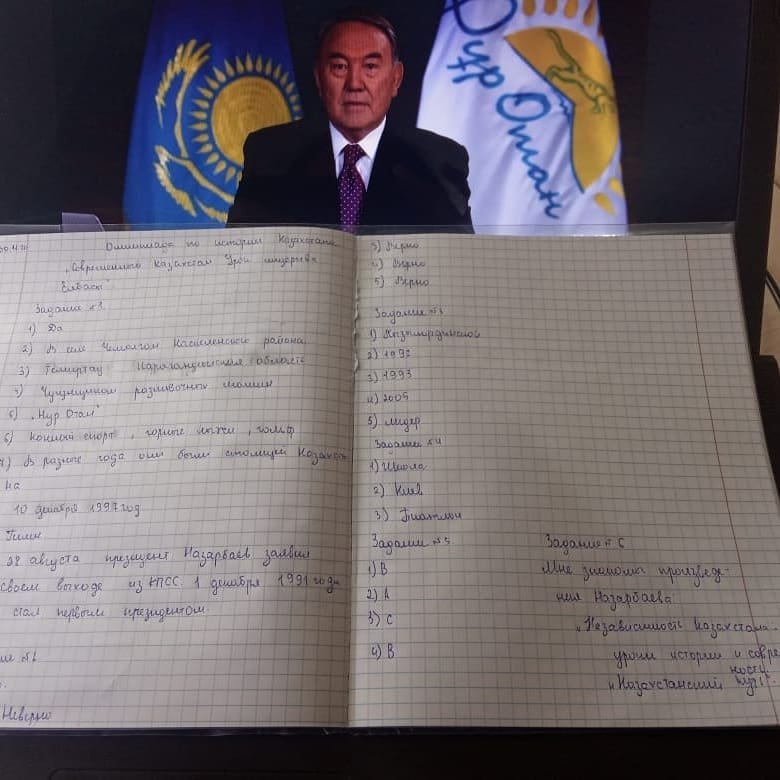 Нұр Отан
Олимпиада по истории Казахстана
"Современного Казахстан Урок лидерства
Елбасы"
Задание №1
1) Да
2) В селе Чемолган Каскеленского района
3) Темиртау Карагандинская область
5) Чугунщиком разливочных машин
6) "Нур Отан"
6) Конный спорт, горные лыжи, гольф
7) В разные года они были столицей Казахста
на
10 декабря 1997 год
Гимн
28 августа президент Назарбаев заявил
своем выходе из КПСС. 1 декабря 1991 года
стал первым президентом.
Неверно
3) Верно
4) Верно
5) Верно
Задание №
1) Кызылординской
2) 1992
3) 1993
4) 2005
5) лидер
Задание №4
1) Школа
2) Киев
3) Биатлон
Задание №5
1) В
2) А
3) С
4) В
Задание № 6
Мне знакомы произведе-
ния Назарбаева
"Независимость Казахстана
уроки истории и совре
ность.
"Казахстанский путь".